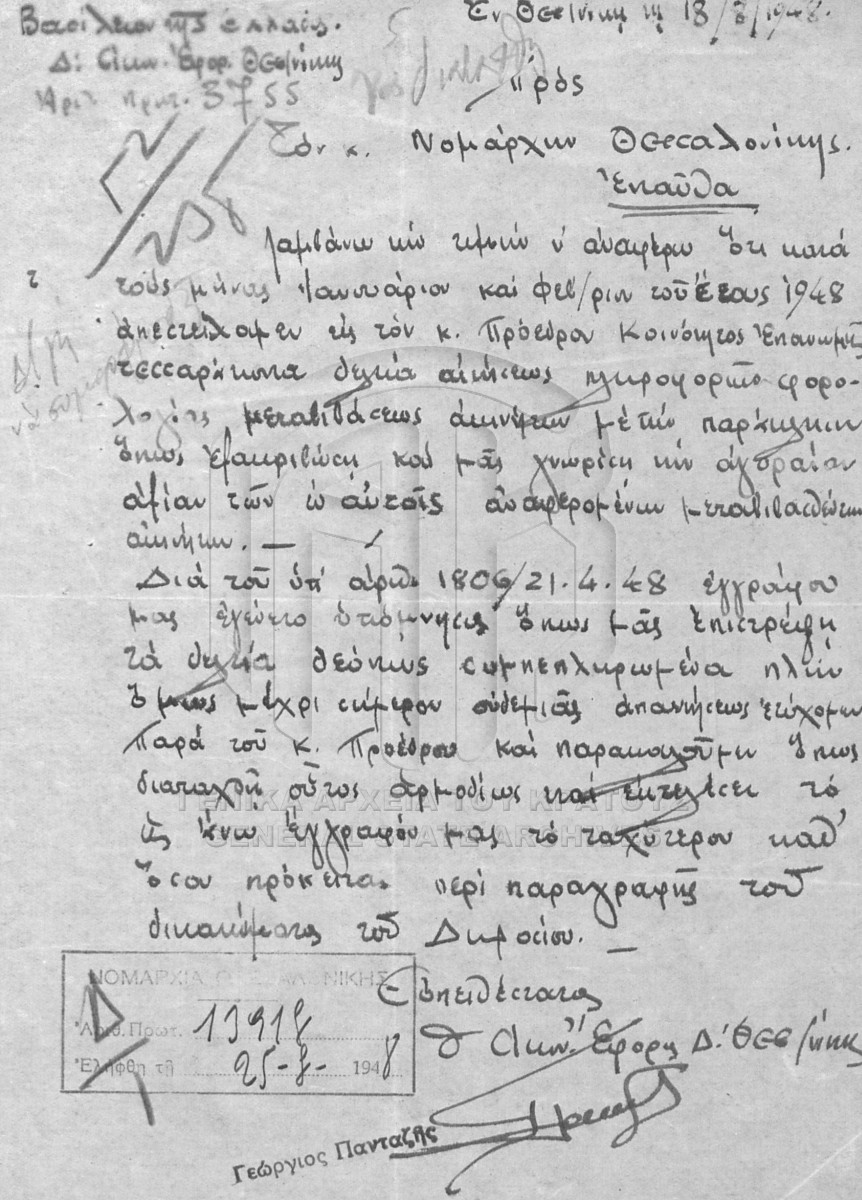 Βασίλειον της Ελλάδος.
Δ! Οικον. Εφορ. Θεσ/νίκης
Αριθ. πρωτ. 3755
Εν Θεσ/νίκη τη 18/8/1948.
Πρός
Τόν κ. Νομάρχην Θεσσαλονίκης.
Ἐνταῦθα
Λαμβάνω τήν τιμήν ν' ἀναφέρω ὅτι κατά
τούς μήνας Ἰανουάριον καί Φεβ/ριον τοῦ ἔτους 1948
ἀπεστείλαμεν εἰς τόν κ. Πρόεδρον Κοινότητος Ἐπανωμῆς
τεσσαράκοντα δελτία αἰτήσεως πληροφοριῶν φορο-
λογίας μεταβιβάσεως ἀκινήτων μέ τήν παράκλησιν
ὅπως ἐξακριβώση καί μᾶς γνωρίση τήν ἀγοραίαν
ἀξίαν τῶν ἐν αὐτοῖς ἀναφερομένων μεταβιβασθέντων
ἀκινήτων. —
Διά τοῦ ὑπ' ἀριθ. 1806/21.4.48 ἐγγράφου
μας ἐγένετο ὑπόμνησις ὅπως μᾶς ἐπιστρέψη
τά δελτία δεόντως συμπεπληρωμένα πλήν
ὅμως μέχρι σήμερον οὐδεμιᾶς ἀπαντήσεως ἐτύχομεν
παρά τοῦ κ. Προέδρου καί παρακαλοῦμεν ὅπως
διαταχθῆ οὗτος ἁρμοδίως καί ἐκτελέσει τό
ὡς ἄνω ἔγγραφόν μας τό ταχύτερον καθ'
ὅσον πρόκειται περί παραγραφῆς τοῦ
δικαιώματος τοῦ Δημοσίου. —
Εὐπειθέστατος
Ὁ Οικον. Ἔφορος Δ! Θεσ/νίκης
ΝΟΜΑΡΧΙΑ ΘΕΣΣΑΛΟΝΙΚΗΣ
Ἀριθ. Πρωτ. 13918
Ἐλήφθη τῇ 25-8- 1948
Γεώργιος Πανταζής
ΓΕΝΙΚΑ ΑΡΧΕΙΑ ΤΟΥ ΚΡΑΤΟΥΣ
GENERAL STATE ARCHIVES